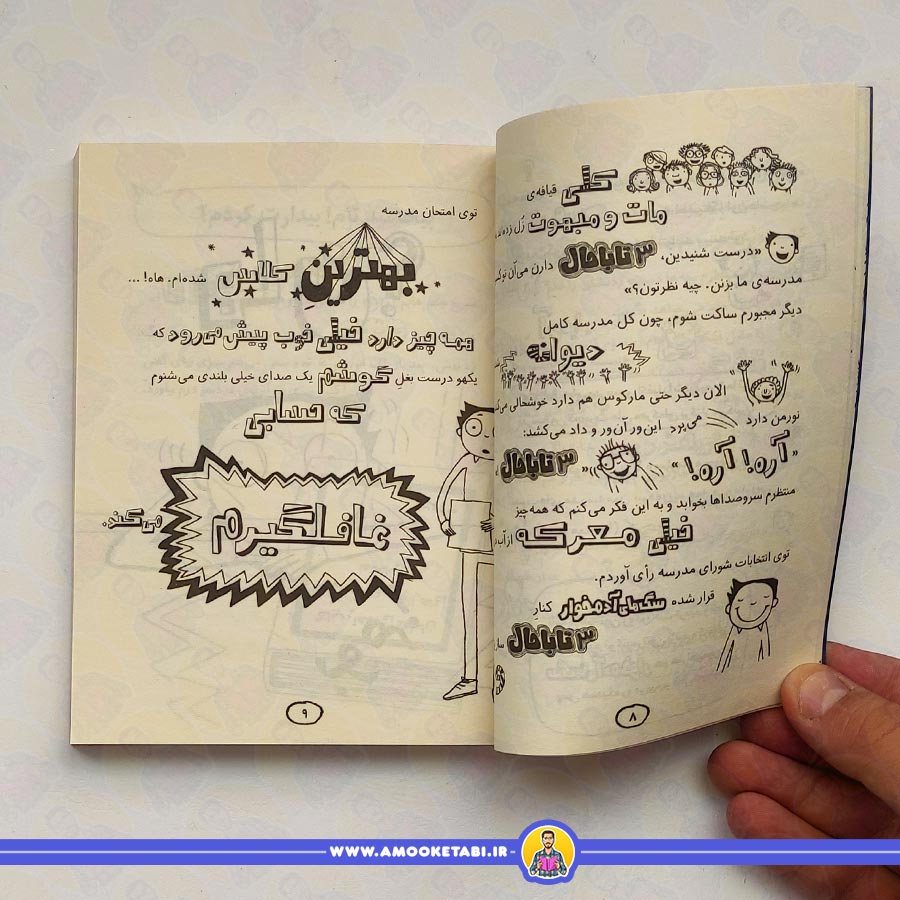 کلی قیافه‌ی
مات و مبهوت زل زده‌اند
«درست شنیدین، ۳ تا باحال دارن می‌آن تو
مدرسه‌ی ما بزنن. چیه نظرتون؟»
دیگر مجبورم ساکت شوم، چون کل مدرسه کامل
دیوانه
الان دیگر حتی مارکوس هم دارد خوشحالی
نورمن دارد می‌پرد این‌ور آن‌ور و داد می‌کشد:
«آره! آره!» «۳ تا باحال
منتظرم سروصداها بخوابد و به این فکر می‌کنم که همه‌چیز
خیلی معرکه از آب
توی انتخابات شورای مدرسه رأی آوردم.
قرار شده سگ‌های آدمخوار کنار
۳ تا باحال
۸
توی امتحان مدرسه
بهترین کلاس شده‌ام. هاه! ...
همه چیز دارد خیلی خوب پیش می‌رود که
یکهو درست بغل گوشم یک صدای خیلی بلندی می‌شنوم
که حسابی
غافلگیرم
می‌کند.
۹
WWW.AMOOKETABI.IR